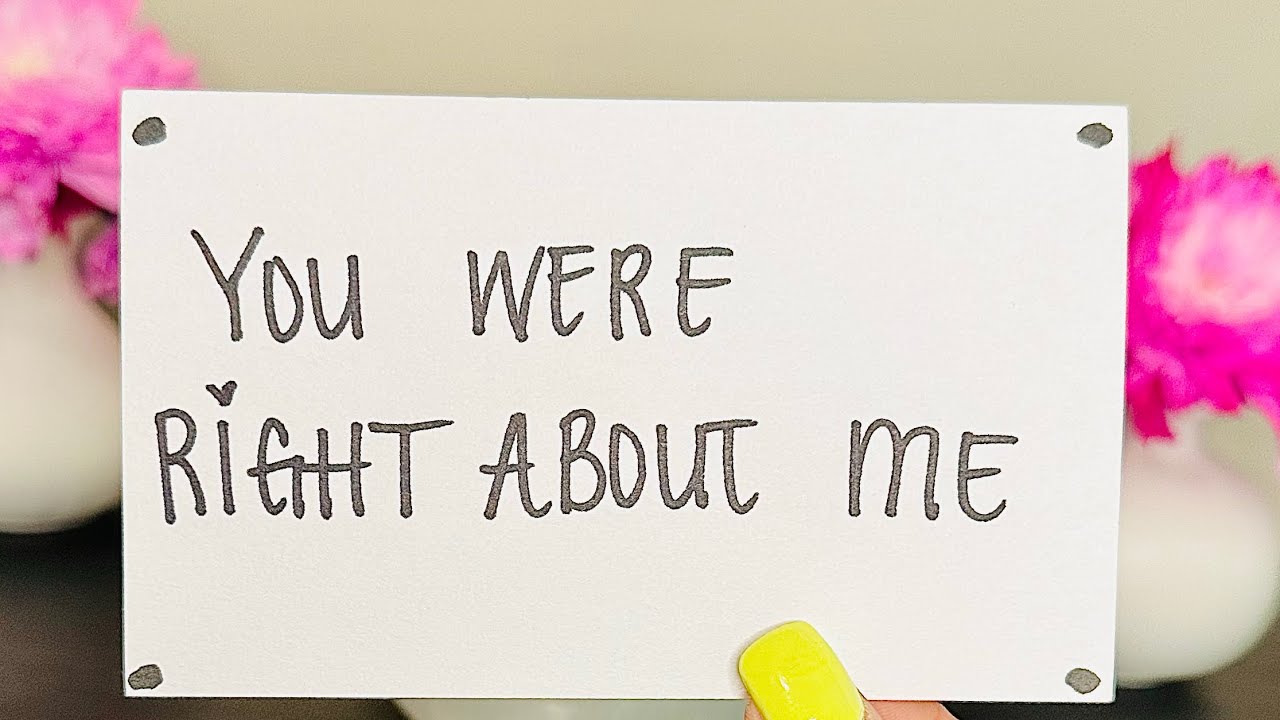 YOU WERE
RiGHT ABOUT ME